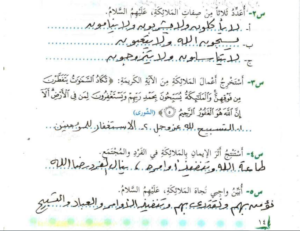 س٢- أعدد ثلاثًا من صفات الملائكة، عليهم السلام.
أ- لا يأكلون ولا يشربون ولا ينامون
ب- يسبحون الله ولا يتعبون
ج- لا يتناسلون ولا يتزوجون
س٣- أستخرج أعمال الملائكة من الآية الكريمة: ﴿تكاد السموات يتفطرن
من فوقهن والملائكة يسبحون بحمد ربهم ويستغفرون لمن في الأرض ألا
إن الله هو الغفور الرحيم ۝﴾ (الشورى)
١- التسبيح لله عز وجل ٢- الاستغفار للمؤمنين
س٤- أستنتج أثر الإيمان بالملائكة في الفرد والمجتمع.
طاعة الله وتنفيذ أوامره، ينال الفرد رضا الله
س٥- أبين واجبي تجاه الملائكة، عليهم السلام.
نؤمن بهم ونقتدي بهم وتنفيذ الأوامر والعبادة والتسبيح
١٤